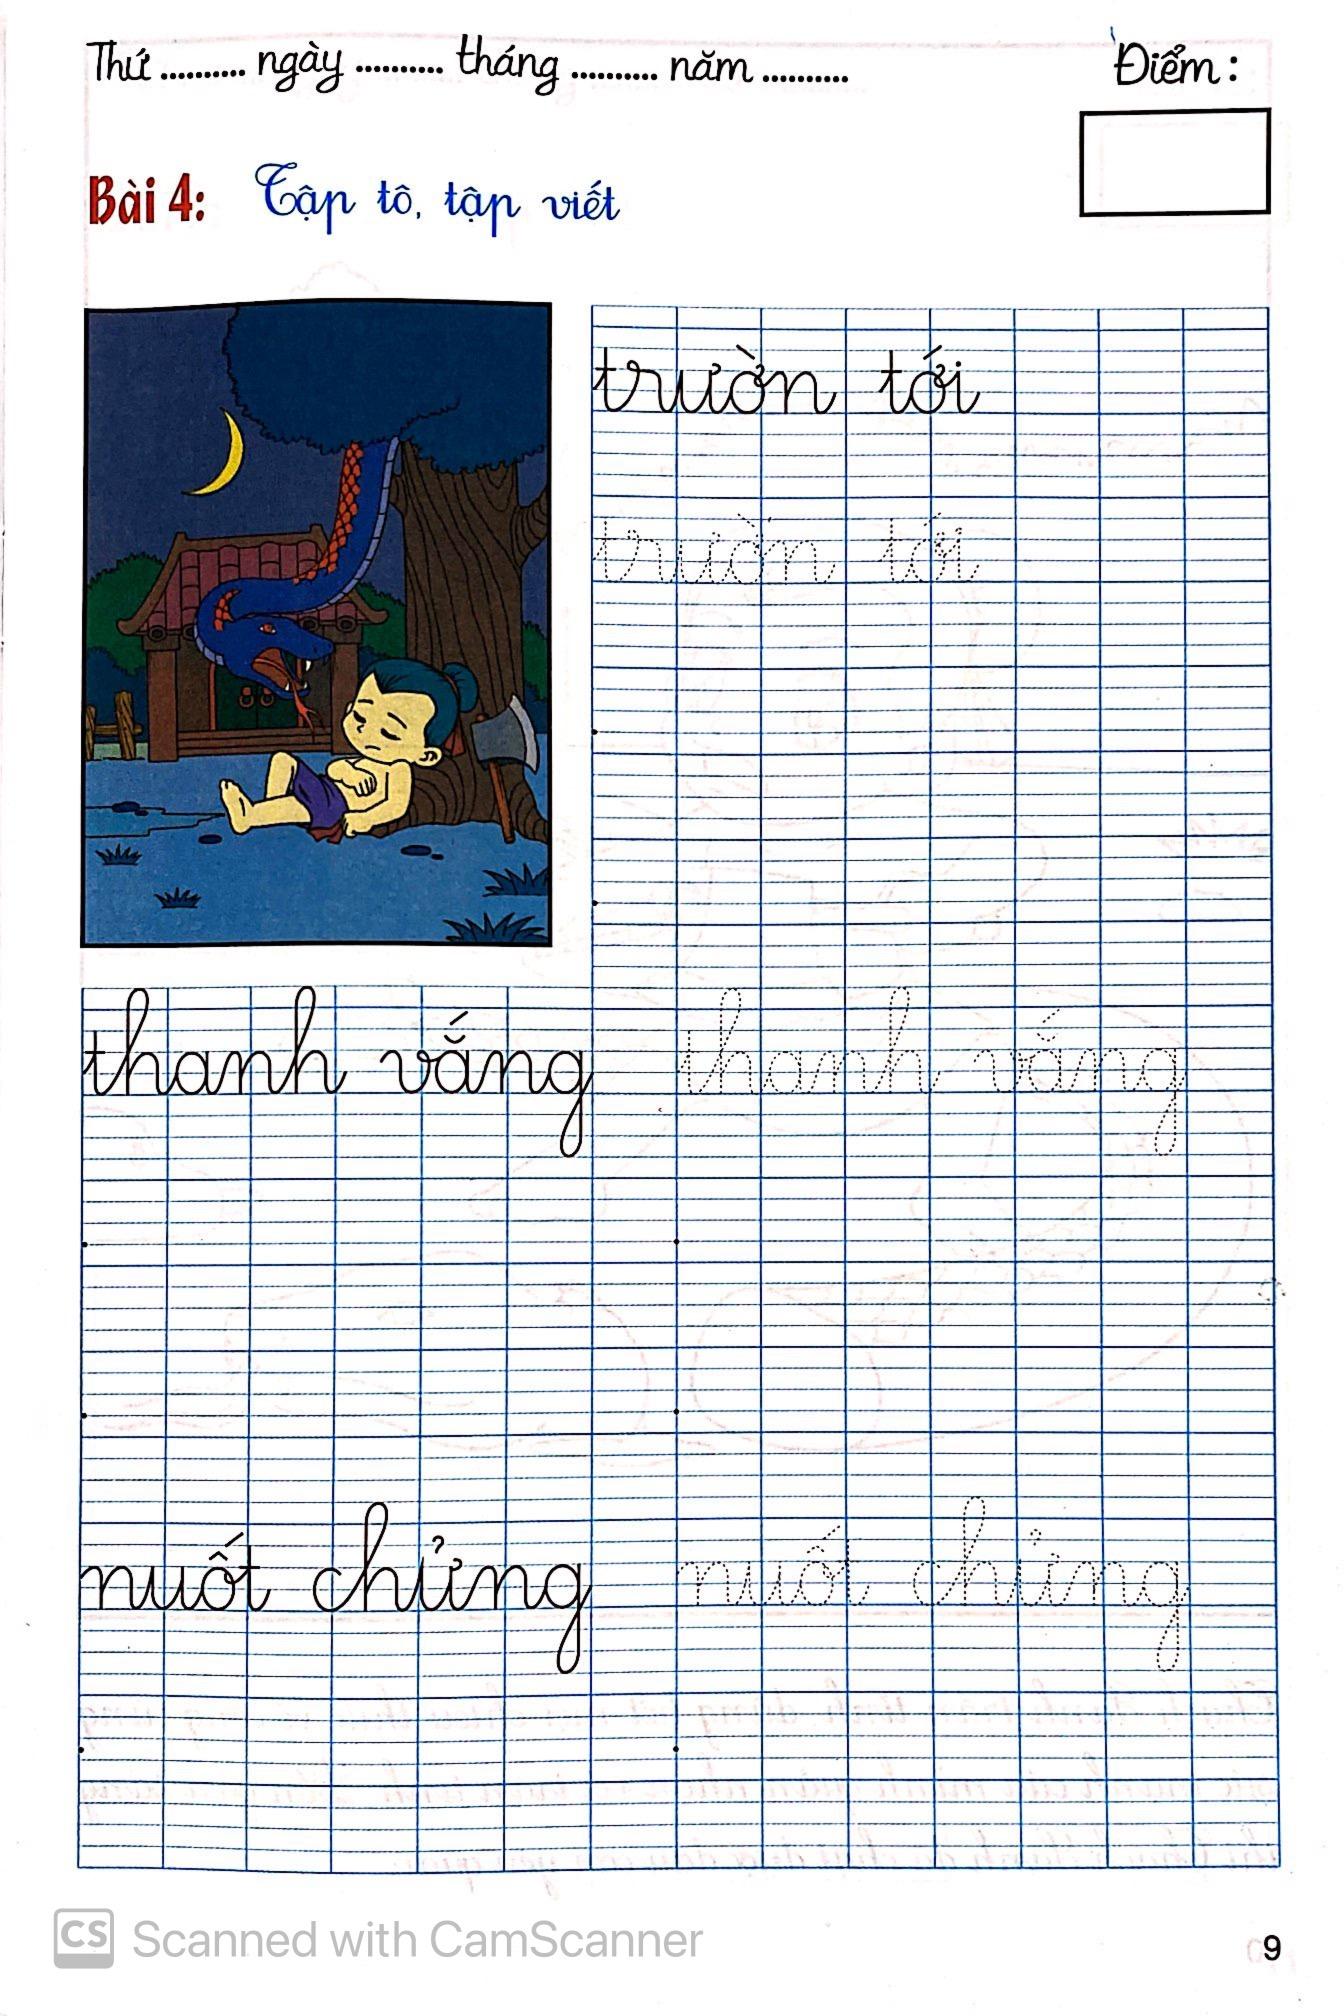 Thứ .......... ngày .......... tháng .......... năm ..........
Điểm :
Bài 4: Tập tô, tập viết
trườn tới
trườn tới
thanh vắng thanh vắng
nuốt chửng nuốt chửng
CS Scanned with CamScanner
9